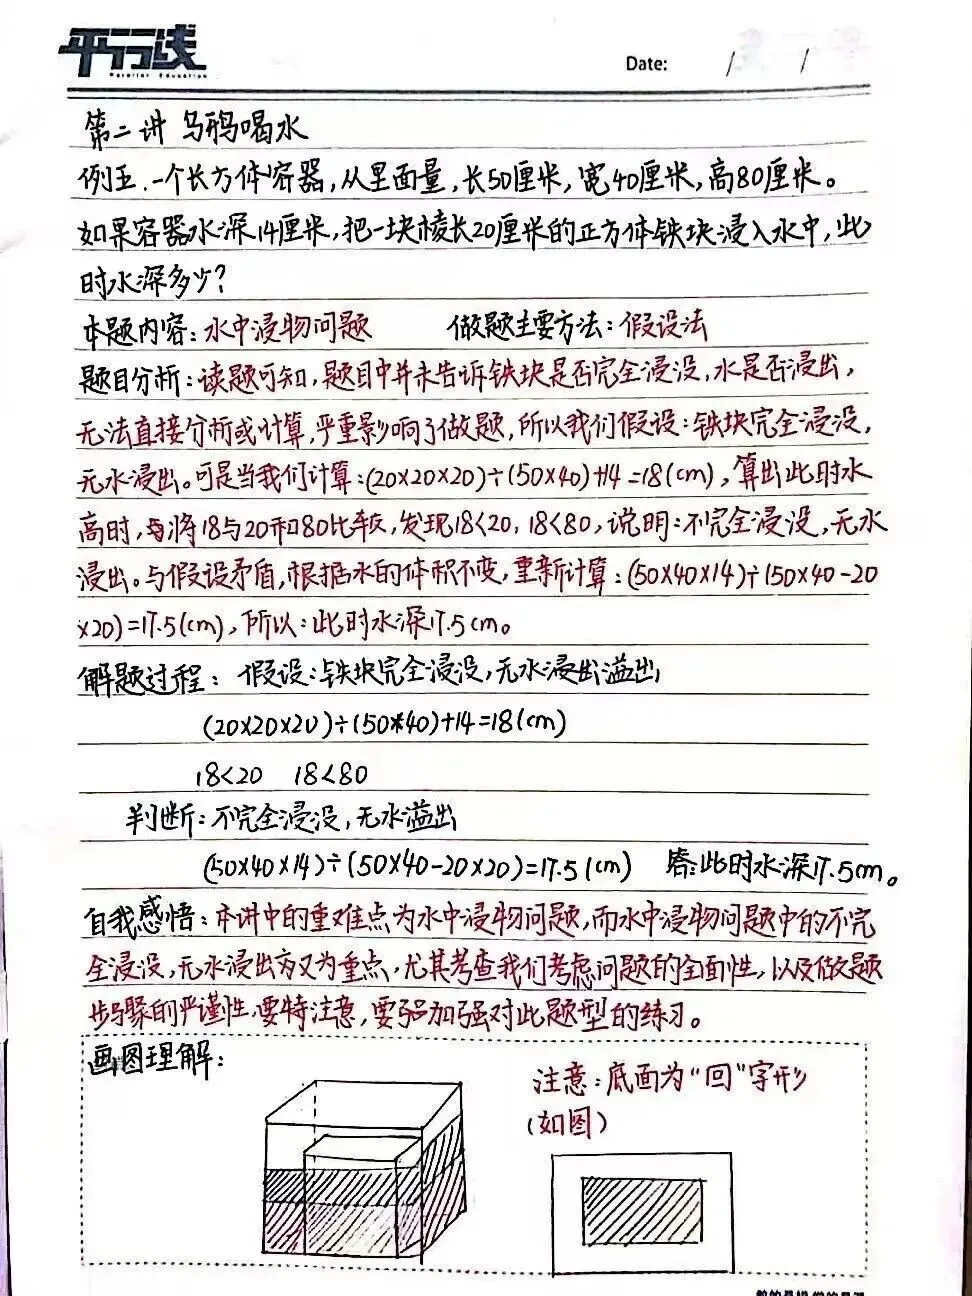 平行线
Parallel Education
Date: / /
第二讲 乌鸦喝水
例五.一个长方体容器,从里面量,长50厘米,宽40厘米,高80厘米。
如果容器水深14厘米,把一块棱长20厘米的正方体铁块浸入水中,此
时水深多少?
本题内容:水中浸物问题 做题主要方法:假设法
题目分析:读题可知,题目中并未告诉铁块是否完全浸没,水是否浸出,
无法直接分析或计算,严重影响了做题,所以我们假设:铁块完全浸没,
无水浸出。可是当我们计算:(20×20×20)÷(50×40)+14=18(cm),算出此时水
高时,将18与20和80比较,发现18<20,18<80,说明:不完全浸没,无水
浸出。与假设矛盾,根据水的体积不变,重新计算:(50×40×14)÷(50×40-20
×20)=17.5(cm),所以:此时水深17.5cm。
解题过程: 假设:铁块完全浸没,无水浸出溢出
(20×20×20)÷(50×40)+14=18(cm)
18<20 18<80
判断:不完全浸没,无水溢出
(50×40×14)÷(50×40-20×20)=17.5(cm) 答:此时水深17.5cm。
自我感悟:本讲中的重难点为水中浸物问题,而水中浸物问题中的不完
全浸没,无水浸出方又为重点,尤其考查我们考虑问题的全面性,以及做题
步骤的严谨性,要特注意,要强加强对此题型的练习。
画图理解:
注意:底面为"回"字形
(如图)